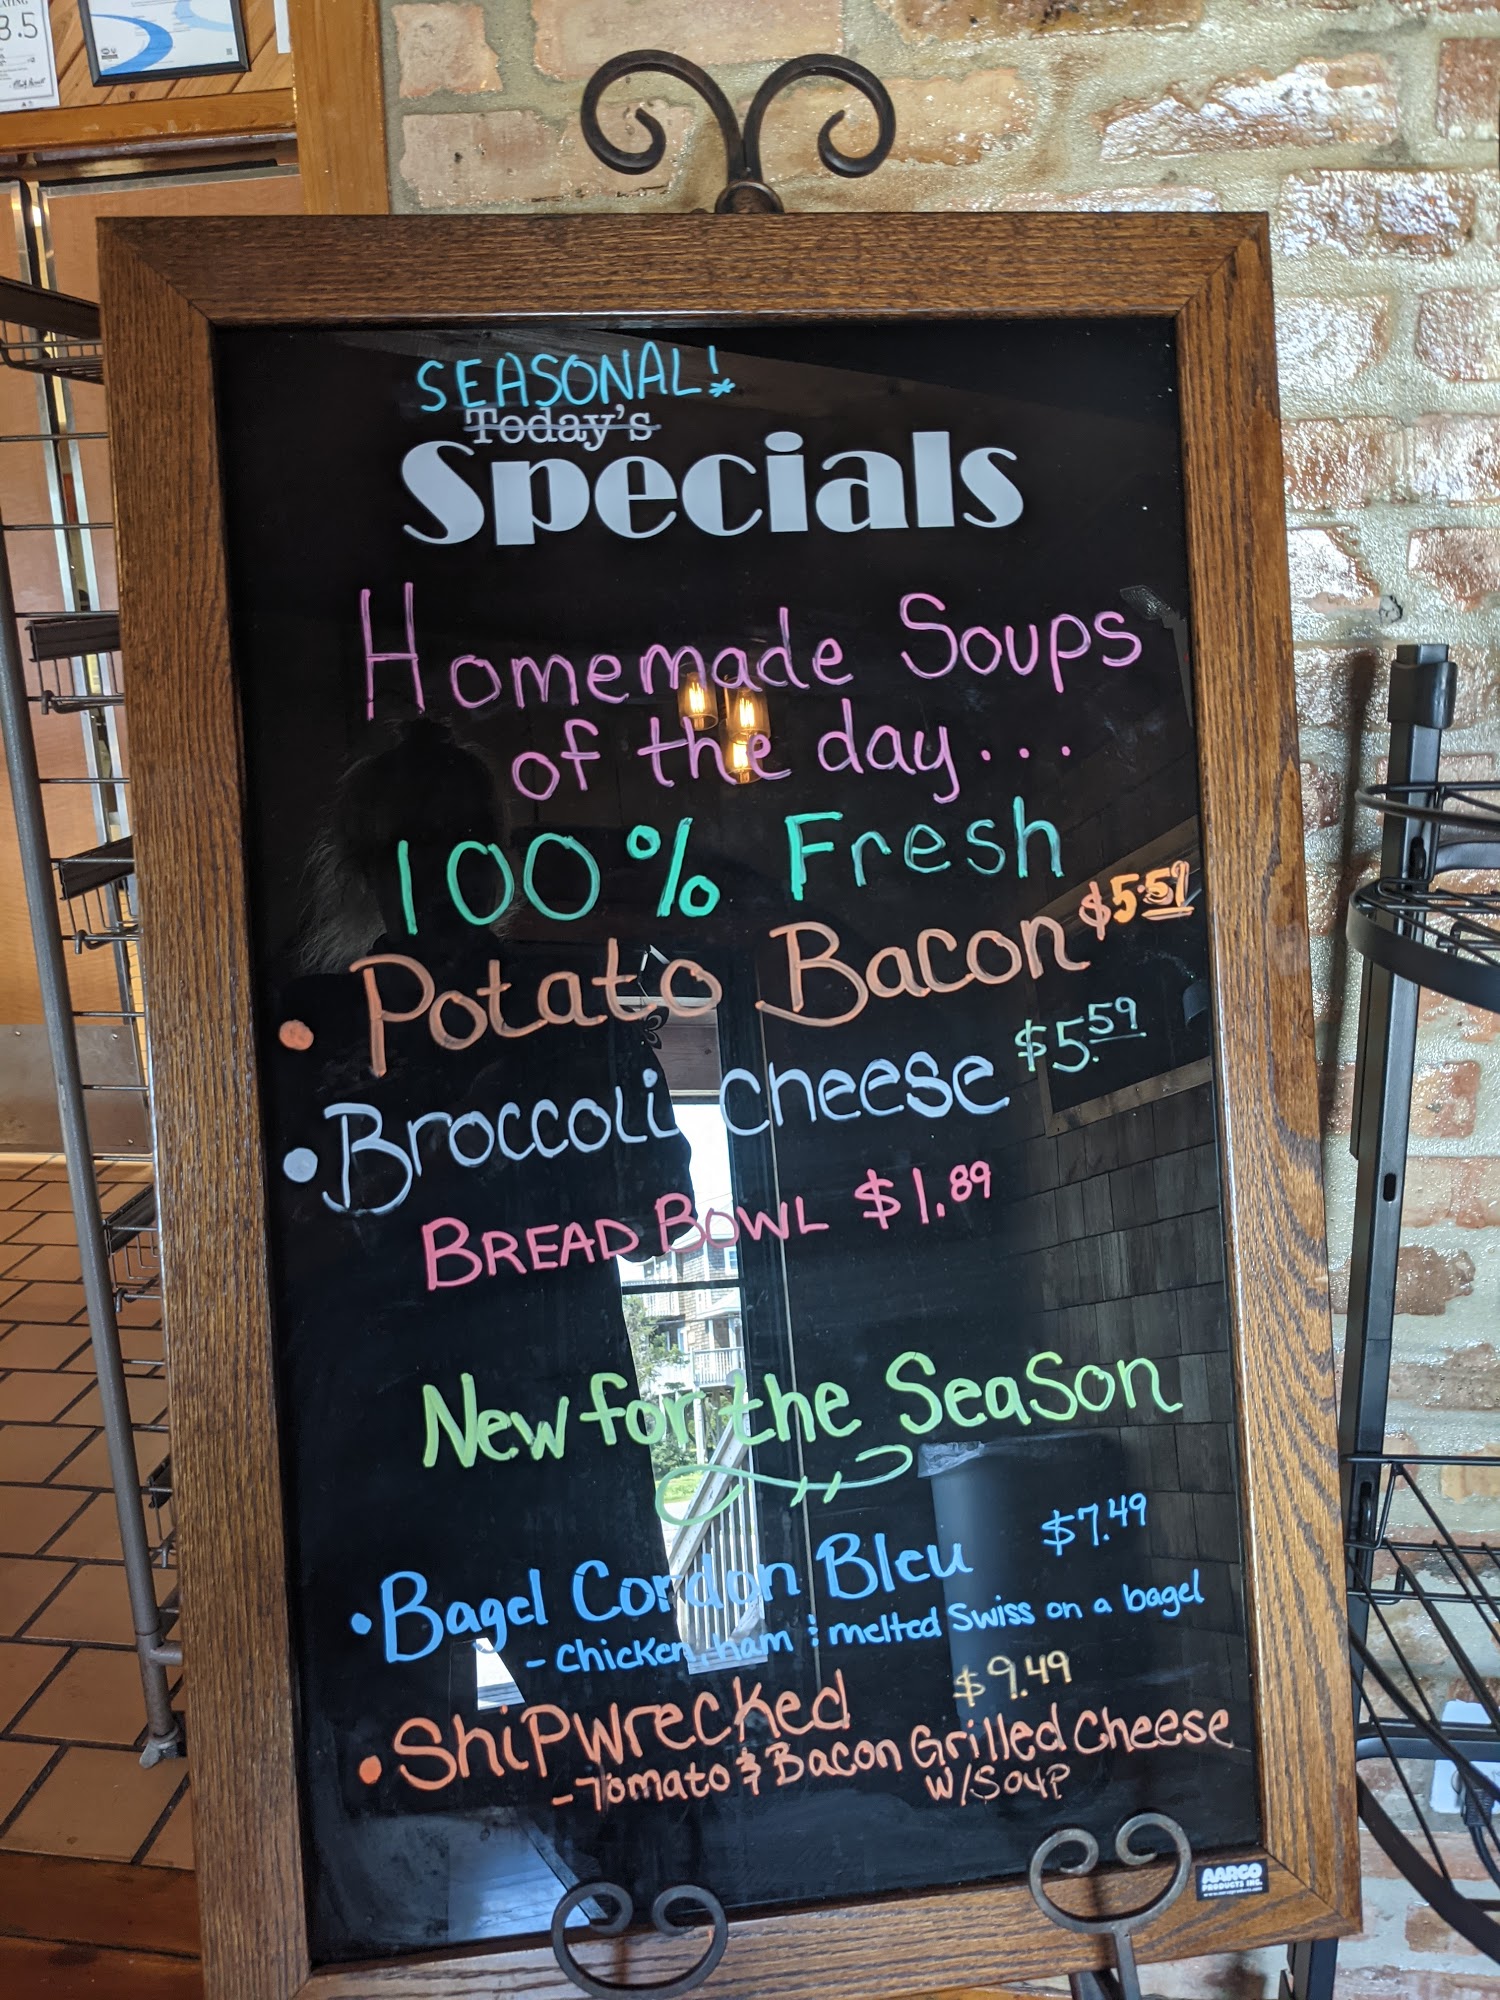 3.5
SEASONAL!*
Today's
Specials
Homemade Soups
of the day...
100% Fresh
• Potato Bacon $5.59
• Broccoli cheese $5.59
BREAD BOWL $1.89
New for the Season
• Bagel Cordon Bleu $7.49
- Chicken, ham & melted Swiss on a bagel
• Shipwrecked $9.49
- Tomato & Bacon Grilled Cheese
w/Soup
AARCO
PRODUCTS INC.